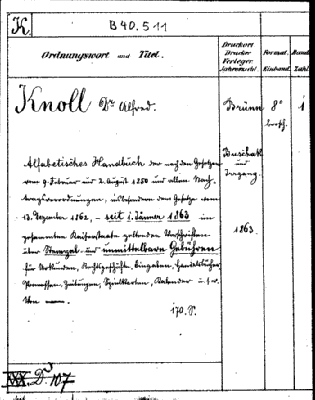 K.
B 40.511
Ordnungswort und Titel.
Druckort
Drucker
Verleger
Jahrzahl
Format.
Einband.
Bände
Zahl
Knoll Dr Alfred.
Brünn
8°
broch.
1
Alfabetisches Handbuch der nach den Gesetzen
vom 9. Februar und 2. August 1850 und allen Nach-
tragsverordnungen, insbesondere dem Gesetze vom
13. Dezember 1862, – seit 1. Jänner 1863 im
gesammten Kaiserstaate geltenden Vorschriften
über Stempel und unmittelbare Gebühren
für Urkunden, Rechtsgeschäfte, Eingaben, Handelsbücher
Zeitungen, Spielkarten, Kalender u. s. w.
Von —.
170. S.
Buschak
und
Irrgang.
1863.
XX. D. 107